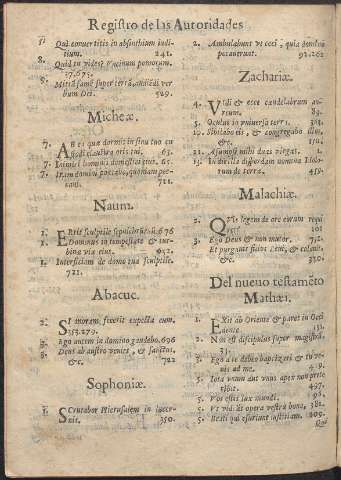 Registro de las Autoridades
Qui convertitis in absinthium iudi-
tium. 241.
8. Quid tu vides? Vncinum pomorum.
37.675.
9. Mittã famẽ super terrã, audiẽdi ver
bum Dei. 529.
Micheæ.
7. Ab ea quæ dormit in sinu tuo cu
stodi claustra oris tui, 63.
7. Inimici hominis domestici eius. 65.
7. Iram domini portabo, quoniam pec-
cavi. 721.
Naum.
1. Eris sculptile sepulchrũ tuũ. 676
1. Dominus in tempestate & tur-
bine viæ eius. 692.
1. Interficiam de domo tua sculptile.
721.
Abacuc.
2. Si moram fecerit expecta eum.
353.279.
3. Ego autem in domino gaudebo. 696
3. Deus ab austro veniet, & sanctus,
&c. 722
Sophoniæ.
1. Scrutabor Hierusalem in lucer-
nis. 350.
2. Ambulabunt vt cæci, quia domino
peccaverunt. 92.262
Zachariæ.
4. Vidi & ecce candelabrum au-
reum. 89.
5. Oculus in vniversa terra. 352.
10. Sibilabo eis, & congregabo illos,
&c. 151.
11. Assumpsi mihi duas virgas. 1.
13. In die illa disperdam nomina Idolo-
rum de terra. 459.
Malachiæ.
2. Qui legem de ore eorum requi
rent 101
3. Ego Deus & non mutor. 752.
3. Et purgabit filios Levi, & colabit,
&c. 320.
Del nuevo testamẽto
Mathæi.
1. Exit ab Oriente & paret in Occi
dente. 151.
2. Non est discipulus super magistrũ.
31.
3. Ego a te debeo baptizari & tu ve-
nis ad me. 419.
5. Iota vnum aut vnus apex non præte
ribit. 497.
5. Vos estis lux mundi. 96.
5. Vt videãt opera vestra bona, 382.
5. Beati qui esuriunt iustitiam. 209.